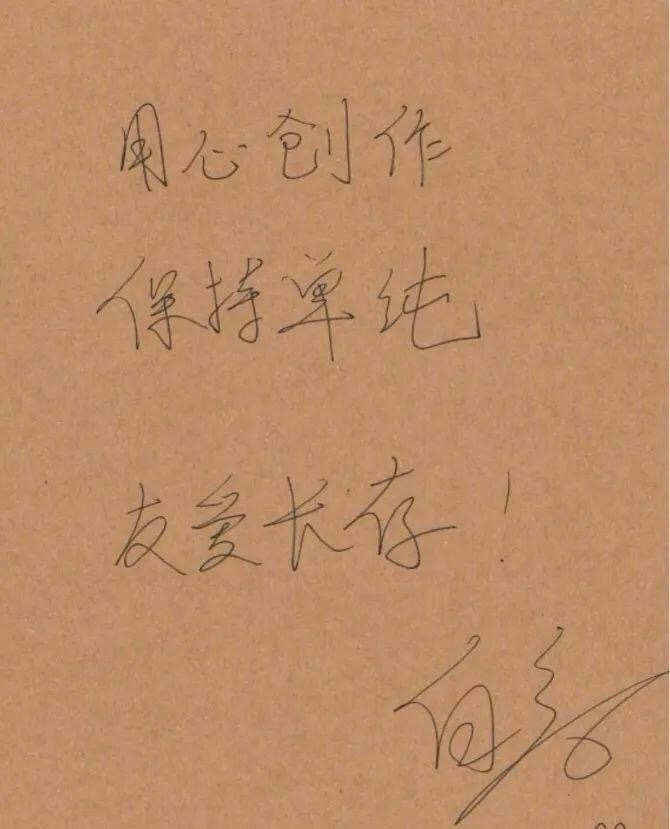 用心创作
保持单纯
友爱长存！